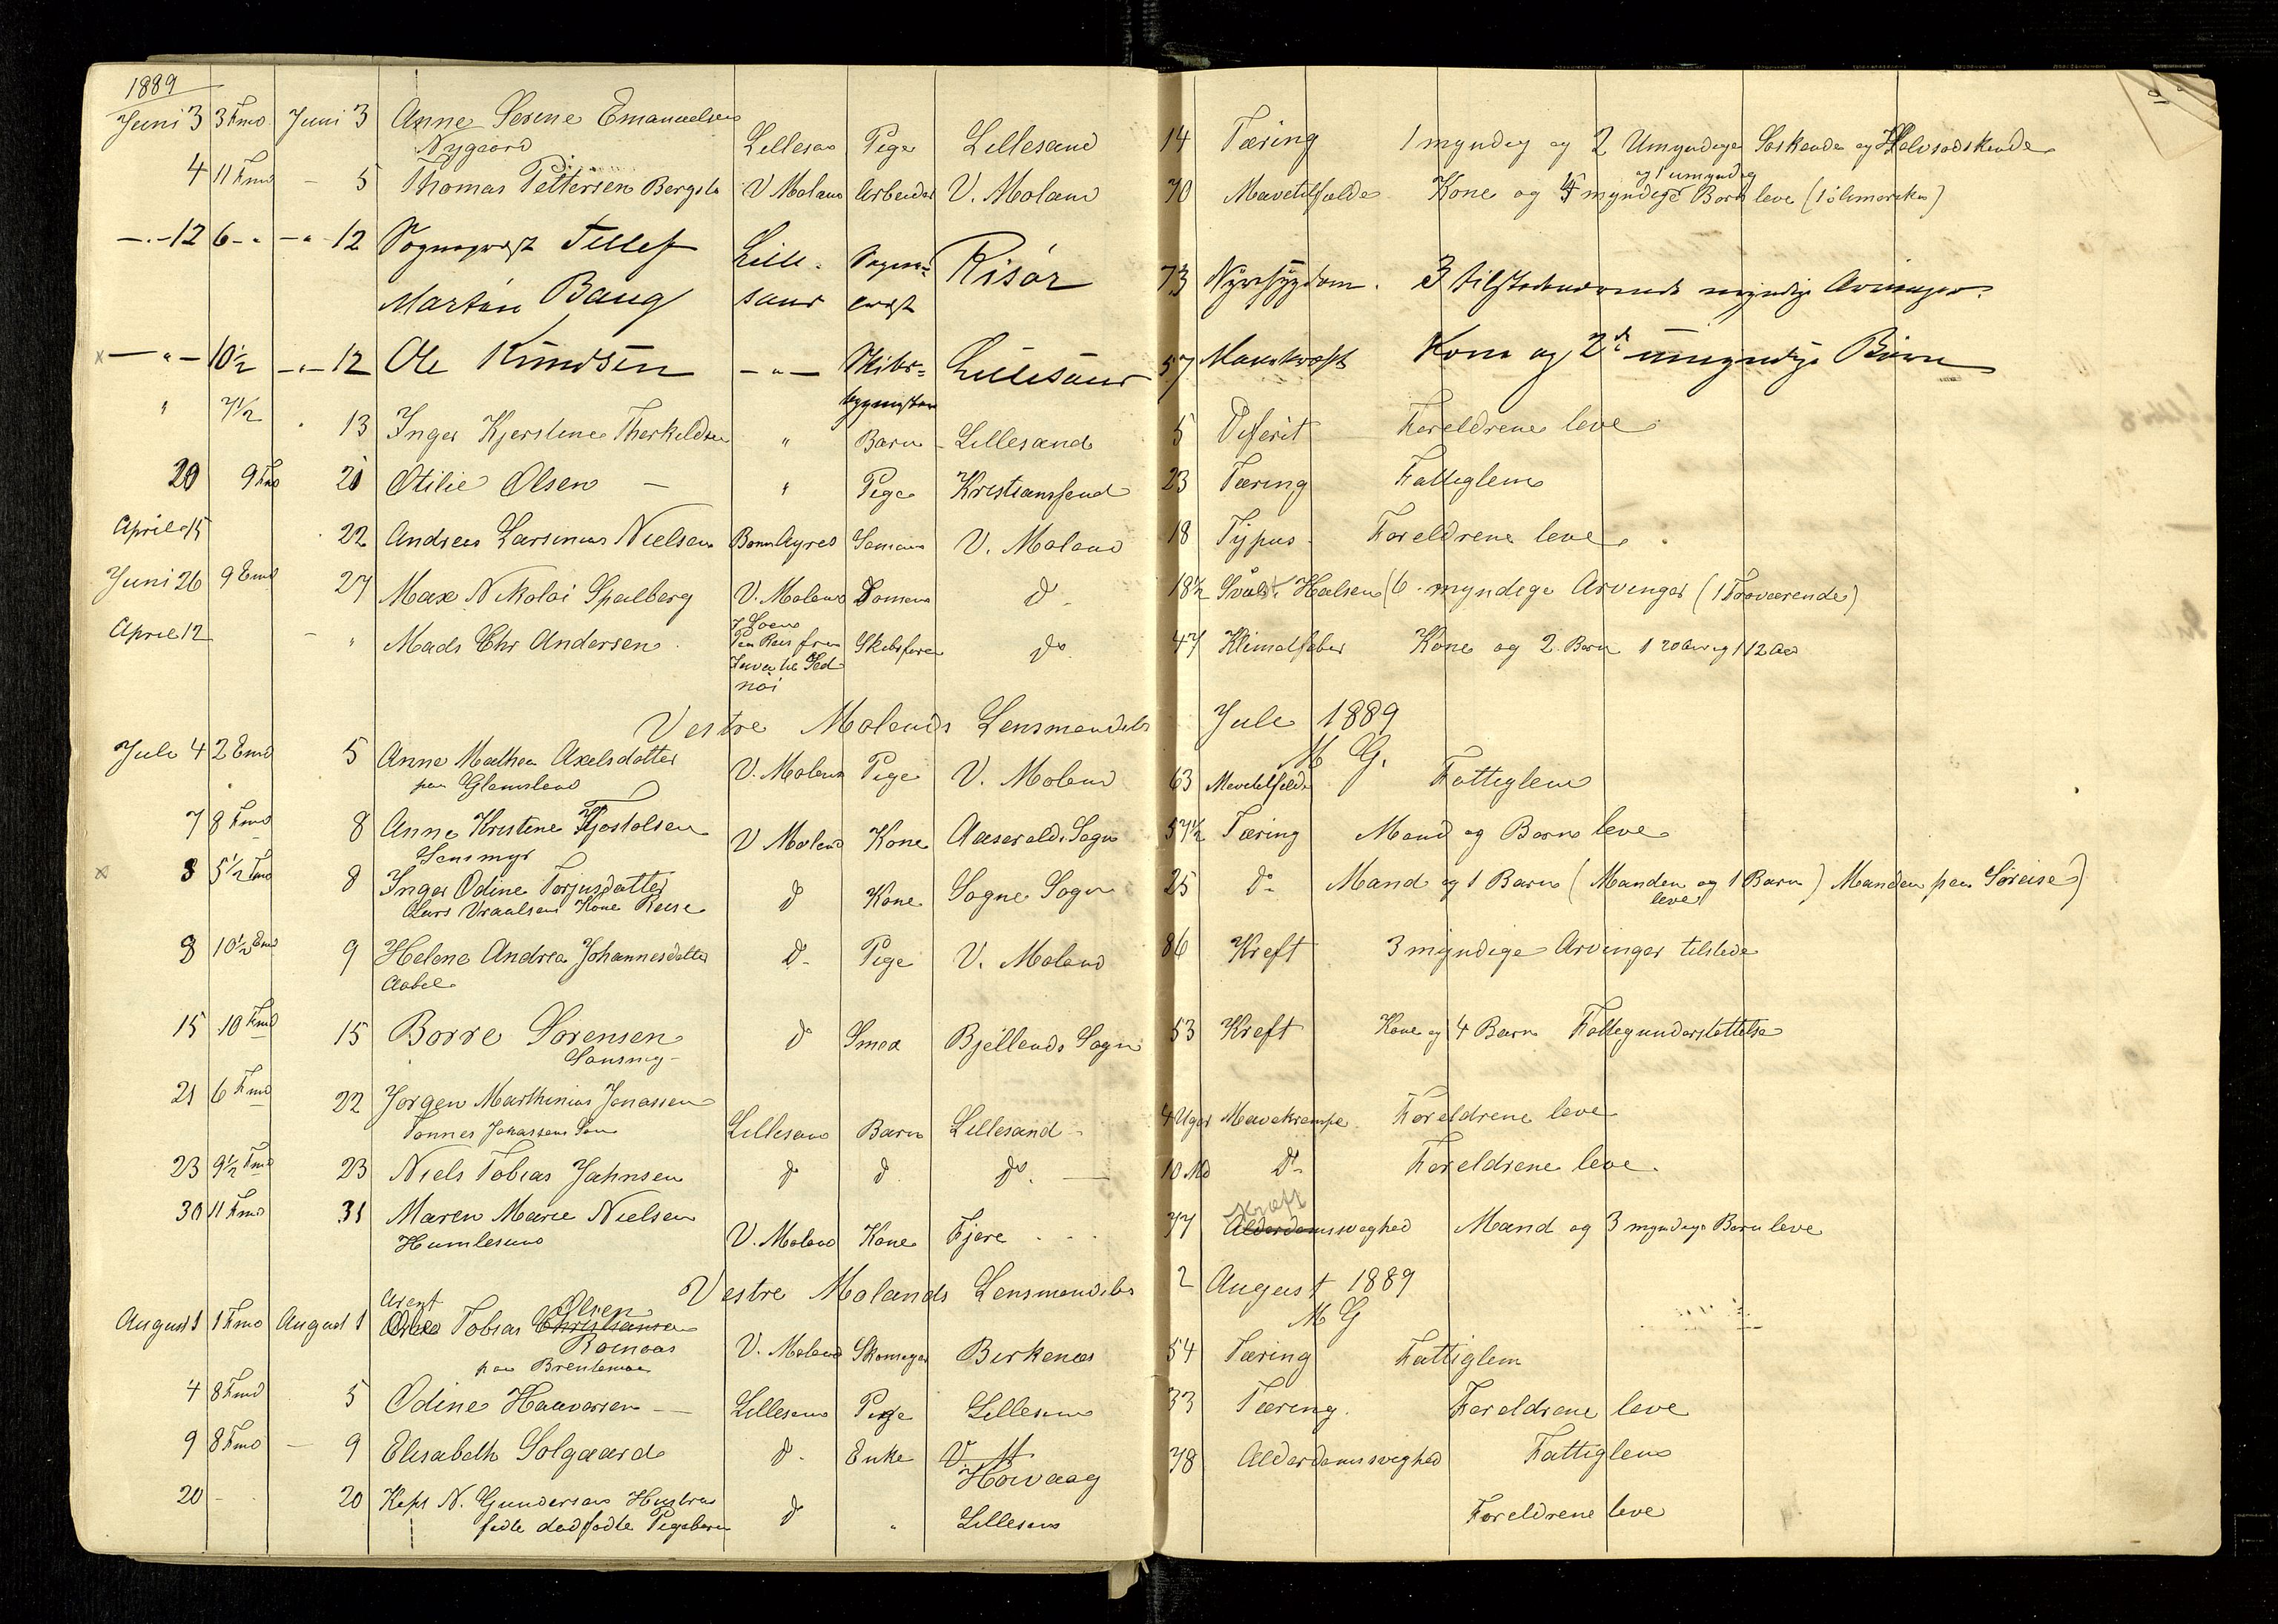 1889
Juni 3 3 Fmd Juni 3 Anne Serine Emanuelsen
Nygaard Lillesand Pige Lillesand 14 Tæring 1 myndig og 2 Umyndige Søskende og Halvsødskende
4 11 Fmd – 5 Thomas Pettersen Bergsto V Moland Arbeider V. Moland 70 Mavetilfælde Kone og 4 myndige og 1 umyndig Børn leve
–"– 12 6 –"– –"– 12 Sogneprest Tellef Lille- Sogne- Risør 73 Nyresygdom. 3 tilstedeværende myndige Arvinger.
Martin Baug sand prest
x –"– 10½ –"– 12 Ole Knudsen –"– Skibs- Lillesand 57 Mavekræft Kone og 2 umyndige Børn
bygmester
" 7½ 13 Inger Kjerstine Therkildsen " Barn Lillesand 5 Diferit Foreldrene leve
20 9 Fmd 21 Otilie Olsen – " Pige Kristianssand 23 Tæring Fattiglem
April 15 22 Andreas Larsenius Nielsen Buenos Ayres Sømand V. Moland 18 Typus Foreldrene leve
Juni 26 9 Emd 27 Max Nikolai Spalberg V. Moland Sømand do 18½ Svulst i Halsen 6 myndige Arvinger (1 Fraværende)
April 12 – " Mads Chr Andersen Skibsfører do 47 Klimatfeber Kone og 2 Børn 1 20 Aar og 1 12 Aar
Paa Reis fra
Java til Sid
nei
Vestre Molands Lensmandsb Juli 1889
M G.
Juli 4 2 Emd 5 Anne Mathea Axelsdatter V. Moland Pige V. Moland 63 Mavetilfælde Fattiglem
paa Glamsland
7 8 Fmd 8 Anne Kristine Tjøstolsen V Moland Kone Aaseralds Sogn 57½ Tæring Mand og Børn leve
Sensmyr
x 8 5½ Fmd 8 Inger Odine Torjusdatter do Kone Sogne Sogn 25 do Mand og 1 Barn (Manden og 1 Barn leve) Manden paa Søreise)
Lars Vraalsens Kone Reise
8 10½ Emd 9 Helene Andrea Johannesdatter do Pige V. Moland 86 Kreft 3 myndige Arvinger tilstede
Aabel
15 10 Fmd 15 Borre Sørensen do Smed Bjellands Sogn 53 Kreft Kone og 4 Børn Fattigunderstøttelse
Sansmy-
21 6 Fmd 22 Jørgen Marthinius Jonassen
Tønnes Johassens Søn Lillesand Barn Lillesand 4 Uger Mavekrampe Foreldrene leve
23 9½ Fmd 23 Niels Tobias Jahnsen do do do – 10 Md do Foreldrene leve.
30 11 Fmd 31 Maren Marie Nielsen V. Moland Kone Fjære 77 Kræft Alderdomssvaghed Mand og 3 myndige Børn leve
Humlesund
Vestre Molands Lensmandsb 2 August 1889
M G
August 1 1 Fmd August 1 Arent Tobias Christiansen Olsen
Romaas V. Moland Skomager Birkenæs 54 Tæring Fattiglem
paa Brentemoe
4 8 Fmd 5 Odine Haavorsen – Lillesand Pige Lillesand 33 Tæring. Foreldrene leve
9 8 Fmd – 9 Elisabeth Solgaard do Enke V M 78 Alderdomssvaghed Fattiglem
Høvaag
20 – 20 Kapt N. Gundersens Hustru do " Lillesand Foreldrene leve
fødte dødfødte Pigebarn